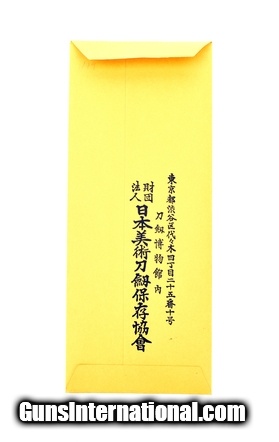 東京都渋谷区代々木四丁目二十五番十号
刀劔博物館内
財団
法人
日本美術刀劔保存協會
GunsInternational.com